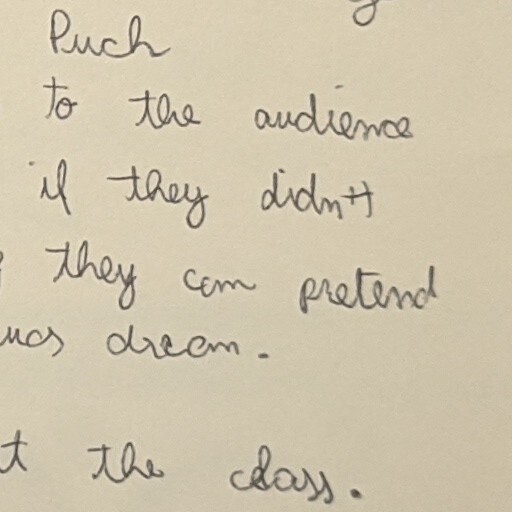 Puck
to the audience
if they didn't
they can pretend
was dream.
the class.